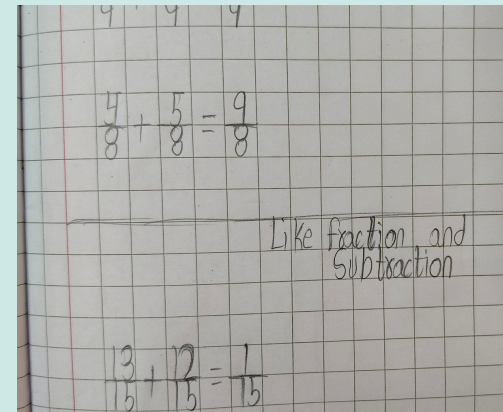 4/8 + 5/8 = 9/8
Like fraction and
Subtraction
13/15 + 12/15 = 1/15